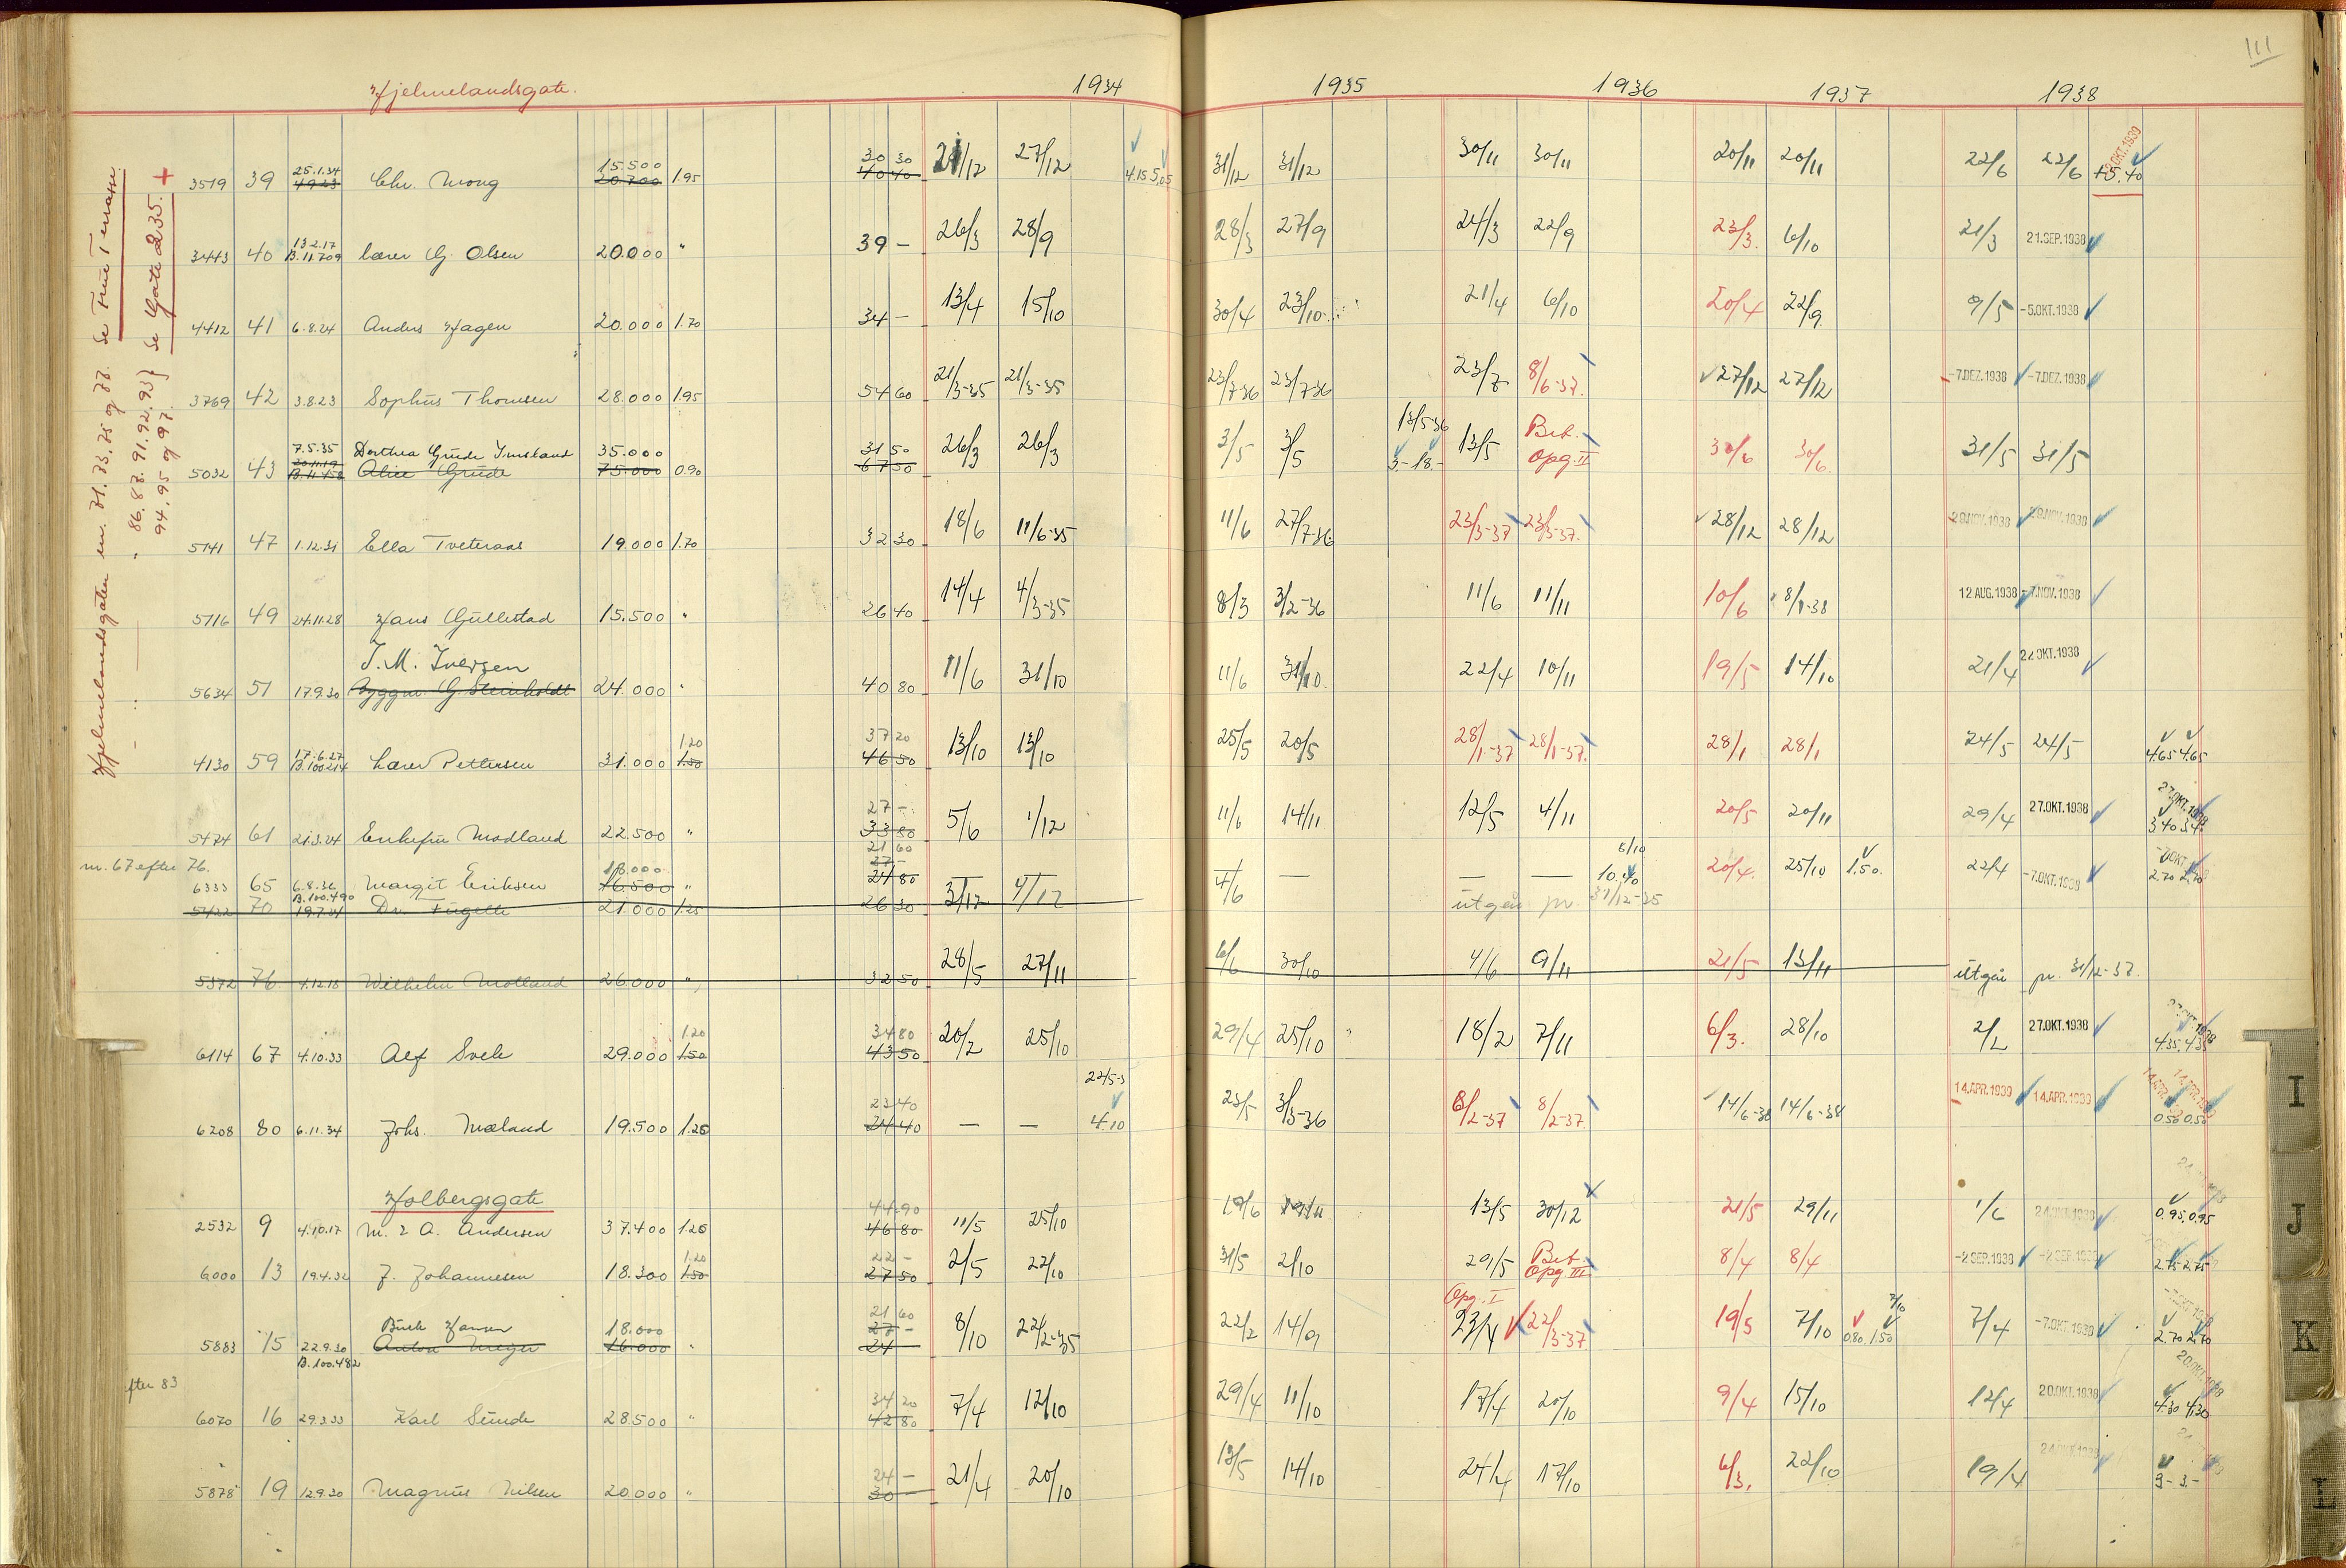 111
Hjelmelandsgate. 1934 1935 1936 1937 1938
Hjelmelandsgaten nr. 71. 73. 75 og 77. Se Frue Terrasse.
" 86. 87. 91. 92. 93 } Se Gate 235. +
94. 95 og 97.
25.1.34 15.500 30 30
3519 39 4923 Chr. Mong 20.700 1.95 40 40 21/12 27/12 4.15 5.05 31/12 31/12 30/11 30/11 20/11 20/11 22/6 22/6 +5.40
13.2.17
3443 40 B.11.709 Lærer G. Olsen 20.000 " 39 - 26/3 28/9 28/3 27/9 24/3 22/9 23/3. 6/10 21/3 21.SEP.1938
4412 41 6.8.24 Anders Hagen 20.000 1.70 34 - 13/4 15/10 30/4 23/10 21/4 6/10 20/4 22/9 9/5 -5.OKT.1938
3769 42 3.8.23 Sophus Thomsen 28.000 1.95 54 60 21/3-35 21/3-35 23/7-36 23/7-36 23/7 8/6-37. 27/12 27/12 -7.DEZ.1938 -7.DEZ.1938
7.5.35 Dorthea Grude Imsland 35.000 31 50 13/5-36 Bet.
5032 43 20.11.19 B.11.458 Alice Grude 75.000 0.90 67 50 26/3 26/3 3/5 3/5 3.- 18.- 13/5 Opg. II 30/6 30/6 31/5 31/5
5141 47 1.12.31 Ella Tveteraas 19.000 1.70 32 30 18/6 11/6-35 11/6 27/7-36 23/3-37 23/3-37. 28/12 28/12 29.NOV.1938 29.NOV.1938
5716 49 24.11.28 Hans Gullestad 15.500 " 26 40 14/4 4/3-35 8/3 3/2-36 11/6 11/11 10/6 8/1-38 12 AUG.1938 -7.NOV.1938
J. M. Iversen
5634 51 17.9.30 Byggm. G. Steinholdt 24.000 " 40 80 11/6 31/10 11/6 31/10 22/4 10/11 19/5 14/10 21/4 22 OKT.1938
17.6.27 1.20 37 20
4130 59 B.100.214 Lærer Pettersen 31.000 1.50 46 50 13/10 13/10 25/5 20/5 28/1-37 28/1-37. 28/1 28/1 24/5 24/5 4.65 4.65
27 - 27.OKT.1938
5474 61 21.3.24 Enkefru Modland 22.500 " 33 80 5/6 1/12 11/6 14/11 12/5 4/11 20/5 20/11 29/4 27.OKT.1938 3.40 3.4
nr. 67 efter 76.
21 60
18.000 27 - 5/10
6333 65 6.8.36 Margit Eriksen 16.500 " 24 80 — — — — — — 10.40 20/4. 25/10 1.50. 22/4 -7.OKT.1938 2.70 2.70
B.100.490
5422 70 19.7.21 Dr. Fugelli 21.000 1.25 26 30 3/12 4/12 4/6 utgår pr. 31/12-35
5372 76 4.12.18 Wilhelm Molland 26.000 " 32 50 28/5 27/11 6/6 30/10 4/6 9/11 21/5 13/11 utgår pr. 31/12-37.
1.20 34 80
6114 67 4.10.33 Alf Sveh 29.000 1.50 43 50 20/2 25/10 29/4 25/10 18/2 7/11 6/3. 28/10 2/2 27.OKT.1938 4.35. 4.35
22/5-3
23 40
6208 80 6.11.34 Johs. Mæland 19.500 1.25 24 40 — — 4.10 23/5 3/3-36 8/2-37 8/2-37. 14/6-38 14/6-38 14.APR.1939 14.APR.1939 14.APR.1939 14.APR.1939 0.50 0.50
Holbergsgate
44.90
2532 9 4.10.17 M. & A. Andersen 37.400 1.25 46 80 11/5 25/10 19/6 19/11 13/5 30/12 21/5 29/11 1/6 24.OKT.1938 0.95 0.95
1.20 22 -
6000 13 19.4.32 J. Johannesen 18.300 1.50 27 50 2/5 22/10 31/5 2/10 29/5 Bet. Opg. III 8/4 8/4 -2.SEP.1938 -2.SEP.1938 2.75 2.75
Buch Hansen 18.000 21 60 Opg. I 7/10
27 -
5883 15 22.9.30 Anton Meyer 16.000 " 24 - 8/10 22/2-35 22/2 14/9 23/4 22/3-37 19/5 7/10 0.80. 1.50 7/4 -7.OKT.1938 2.70 2.70
B.100.482
efter 83
34 20
6070 16 29.3.33 Karl Sunde 28.500 " 42 80 7/4 12/10 29/4 11/10 17/4 20/10 9/4 15/10 12/4 20.OKT.1938 4.30 4.30
24 -
5878 19 12.9.30 Magnus Nilsen 20.000 " 30 - 21/4 20/10 13/5 14/10 24/4 17/10 6/3. 22/10 19/4 24.OKT.1938 3.- 3.-
I
J
K
L